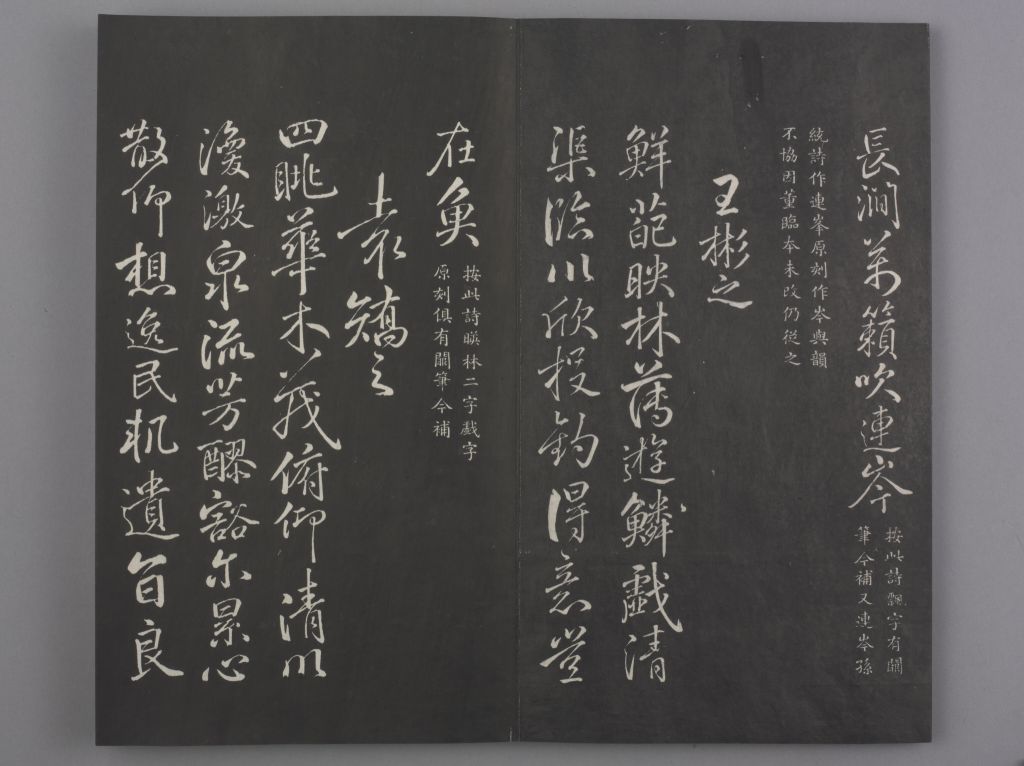 長澗萬籟吹連岑
按此詩飄字有闕
筆今補又連岑孫
統詩作連峯原刻作岑與韻
不協因董臨本未改仍從之
王彬之
鮮葩映林薄遊鱗戲清
渠臨川欣投釣得意豈
在魚
按此詩暎林二字戲字
原刻俱有闕筆今補
袁嶠之
四眺華木茂俯仰清川
激泉流芳醪豁尓累心
散仰想逸民軌遺音良